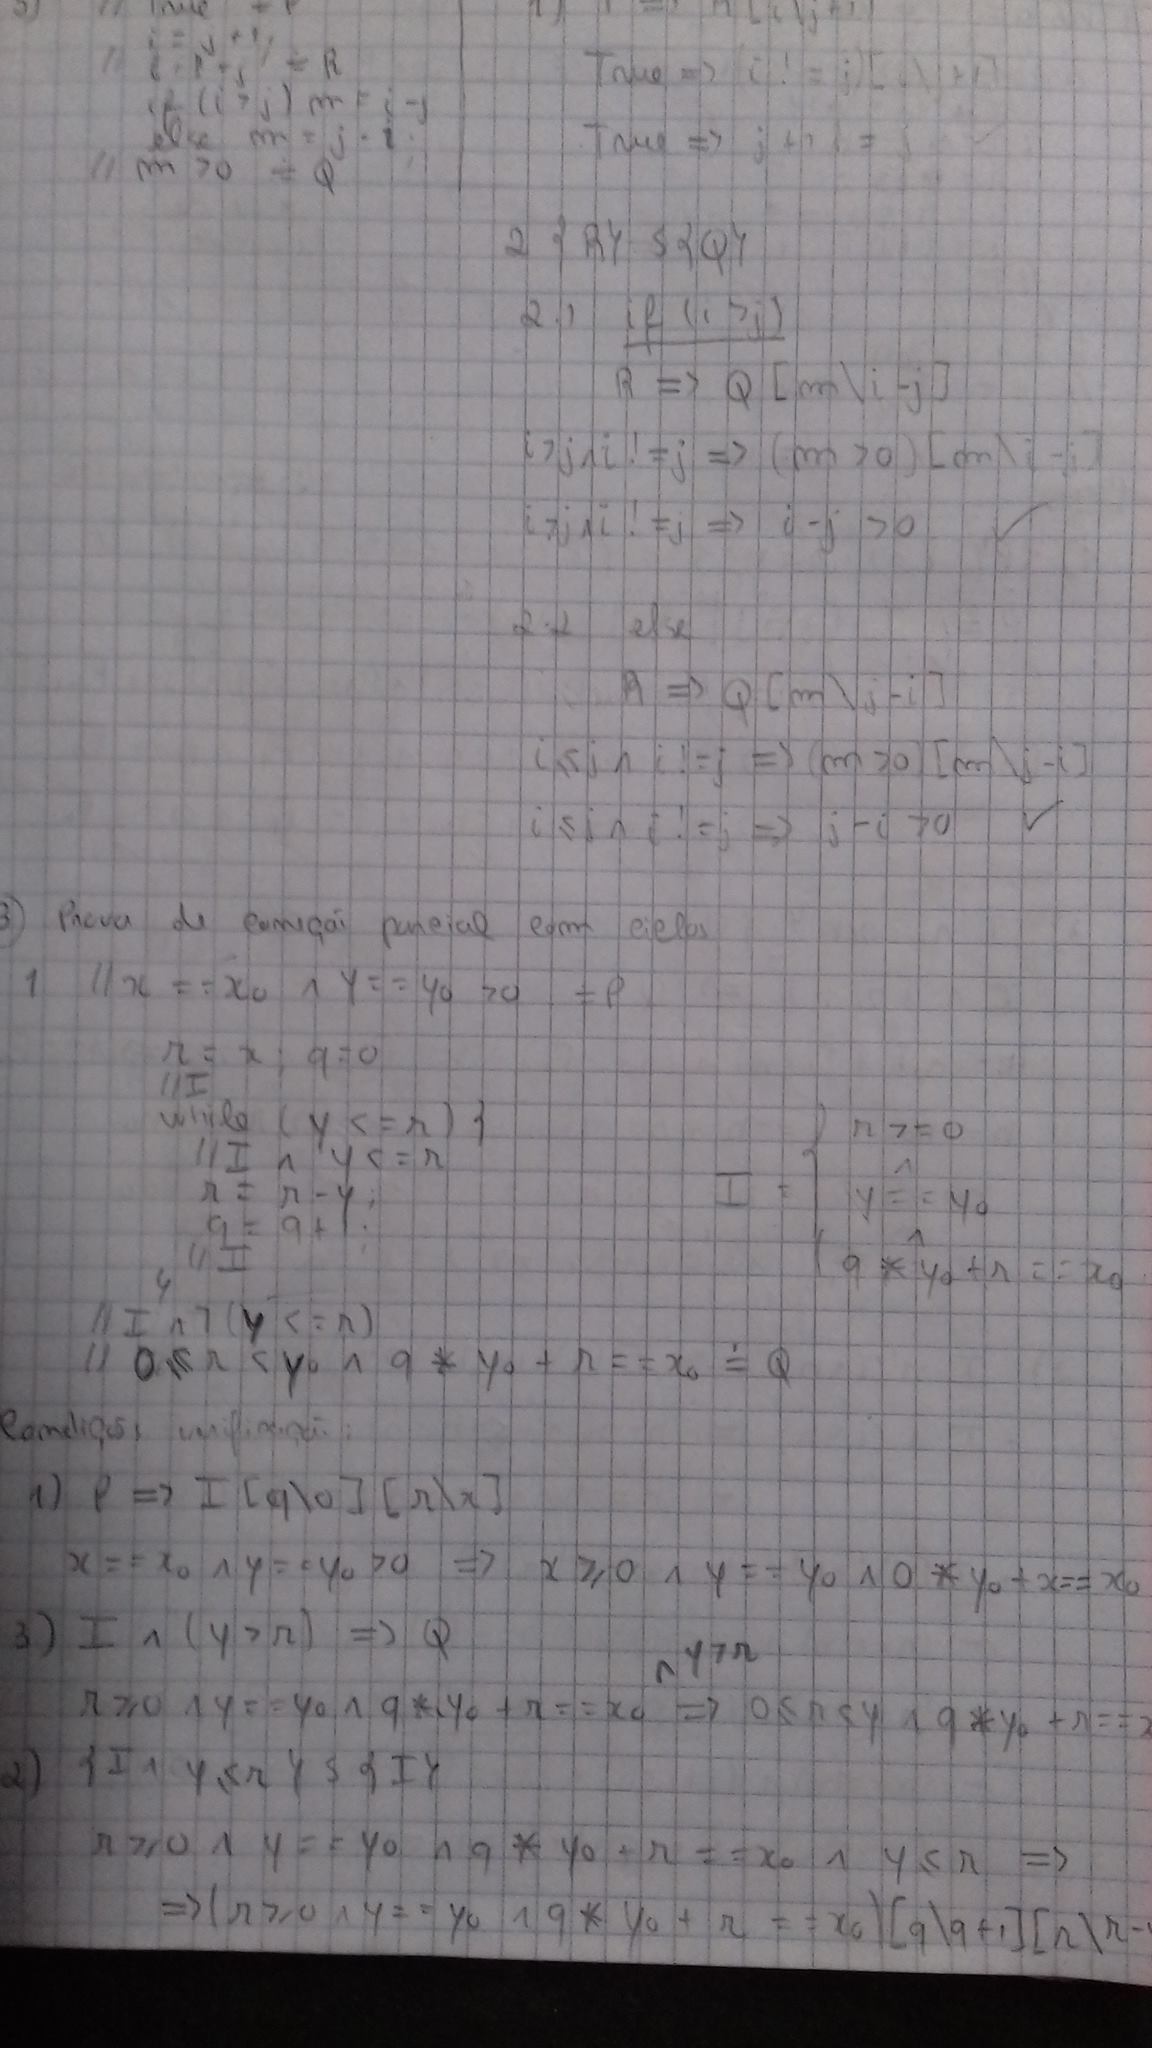 // True ≐ P
i = j + 1;
// i != j ≐ R
if (i > j) m = i - j
else m = j - i;
// m > 0 ≐ Q
True => (i != j) [i\j+1]
True => j + 1 != j
2 {R} S {Q}
2.1 if (i > j)
R => Q [m\i-j]
i>j ∧ i != j => (m > 0) [m\i-j]
i>j ∧ i != j => i - j > 0 ✓
2.2 else
R => Q [m\j-i]
i ≤ j ∧ i != j => (m > 0) [m\j-i]
i ≤ j ∧ i != j => j - i > 0 ✓
3) Prova de correção parcial com ciclos
1 // x == x₀ ∧ y == y₀ > 0 ≐ P
r = x; q = 0
// I
while (y <= r) {
// I ∧ y <= r
r = r - y;
q = q + 1;
// I
}
I = { r >= 0
∧
y == y₀
∧
q * y₀ + r == x₀
// I ∧ ¬(y <= r)
// 0 ≤ r < y₀ ∧ q * y₀ + r == x₀ ≐ Q
Condições verificação:
1) P => I [q\0] [r\x]
x == x₀ ∧ y == y₀ > 0 => x ≥ 0 ∧ y == y₀ ∧ 0 * y₀ + x == x₀
3) I ∧ (y > r) => Q
r ≥ 0 ∧ y == y₀ ∧ q * y₀ + r == x₀ ∧ y > r => 0 ≤ r < y ∧ q * y₀ + r ==
2) {I ∧ y ≤ r} S {I}
r ≥ 0 ∧ y == y₀ ∧ q * y₀ + r == x₀ ∧ y ≤ r =>
=> (r ≥ 0 ∧ y == y₀ ∧ q * y₀ + r == x₀) [q\q+1] [r\r-